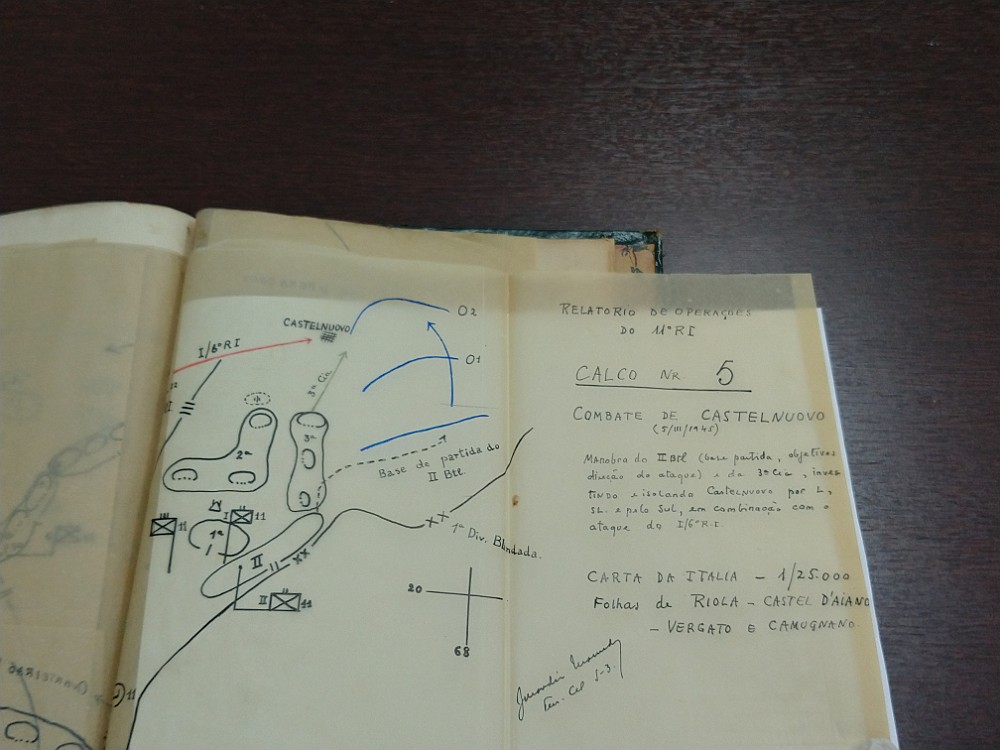 CASTELNUOVO
I/6º RI
O2
O1
3ª Cia
2ª
3ª
Base de partida do
II Btl.
11
I
11
1ª
II
XX
XX 1ª Div. Blindada.
II
11
20
68
11
RELATORIO DE OPERAÇÕES
DO 11º RI
CALCO NR. 5
COMBATE DE CASTELNUOVO
(5/III/1945)
Manobra do II Btl (base partida, objetivos
direção do ataque) e da 3ª Cia, inves
tindo e isolando Castelnuovo por L,
SL. e pelo Sul, em combinação com o
ataque do I/6º R.I.
CARTA DA ITALIA - 1/25.000
Folhas de RIOLA - CASTEL D'AIANO
- VERGATO E CAMUGNANO.
Ten. Cel S-3.